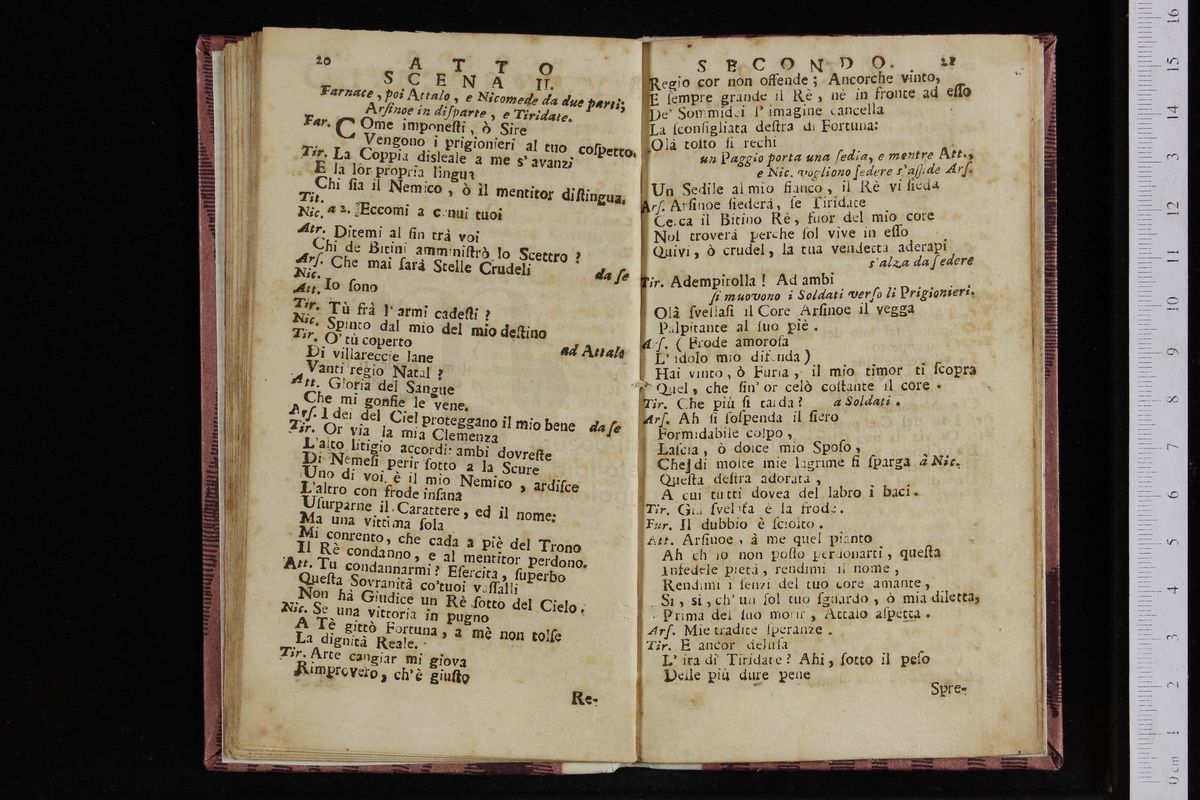 20
ATTO
SCENA II.
Farnace, poi Attalo, e Nicomede da due parti;
Arsinoe in disparte, e Tiridate.
Far. COme imponesti, ò Sire
Vengono i prigionieri al tuo cospetto.
Tir. La Coppia disleale a me s'avanzi
E la lor propria lingua
Chi sia il Nemico, ò il mentitor distingua.
Tit.
Nic. a 2. Eccomi a cenni tuoi
Atr. Ditemi al fin trà voi
Chi de Bitini amministrò lo Scettro?
Ars. Che mai sarà Stelle Crudeli da se
Nic.
Att. Io sono
Tir. Tù frà l'armi cadesti?
Nic. Spinto dal mio del mio destino
Tir. O' tù coperto
Di villareccie lane ad Attalo
Vanti regio Natal?
Att. Gloria del Sangue
Che mi gonfie le vene.
Ars. I dei del Ciel proteggano il mio bene da se
Tir. Or via la mia Clemenza
L'alto litigio accordi: ambi dovreste
Di Nemesi perir sotto a la Scure
Uno di voi è il mio Nemico, ardisce
L'altro con frode insana
Usurparne il Carattere, ed il nome:
Ma una vittima sola
Mi conrento, che cada a piè del Trono
Il Rè condanno, e al mentitor perdono.
Att. Tu condannarmi? Esercita, superbo
Questa Sovranità co'tuoi vassalli
Non hà Giudice un Rè sotto del Cielo.
Nic. Se una vittoria in pugno
A Tè gittò Fortuna, a mè non tolse
La dignità Reale.
Tir. Arte cangiar mi giova
Rimprovero, ch'è giusto
Re-
SECONDO. 21
Regio cor non offende; Ancorche vinto,
E sempre grande il Rè, nè in fronte ad esso
De' Sommi dei l'imagine cancella
La sconsigliata destra di Fortuna:
Olà tosto si rechi
un Paggio porta una sedia, e mentre Att.,
e Nic. vogliono sedere s'asside Ars.
Un Sedile al mio fianco, il Rè vi sieda
Ars. Arsinoe siederà, se Tiridate
Cerca il Bitino Rè, fuor del mio core
Nol troverà perche sol vive in esso
Quivi, ò crudel, la tua vendetta aderapi
s'alza da sedere
Tir. Adempirolla! Ad ambi
si muovono i Soldati verso li Prigionieri.
Olà svellasi il Core Arsinoe il vegga
Palpitante al suo piè.
Ars. (Frode amorosa
L'idolo mio difenda)
Hai vinto, ò Furia, il mio timor ti scopra
Quel, che sin' or celò costante il core.
Tir. Che più si tarda? a Soldati.
Ars. Ah si sospenda il fiero
Formidabile colpo,
Lascia, ò dolce mio Sposo,
Che di molte mie lagrime si sparga à Nic.
Questa destra adorata,
A cui tutti dovea del labro i baci.
Tir. Già svelata è la frode.
Far. Il dubbio è sciolto.
Att. Arsinoe, à me quel pianto
Ah ch'io non posso perdonarti, questa
Infedele pietà, rendimi il nome,
Rendimi i senzi del tuo core amante,
Si, si, ch'un sol tuo sguardo, ò mia diletta,
Prima del suo morir, Attalo aspetta.
Ars. Mie tradite speranze.
Tir. E ancor delusa
L'ira di Tiridate? Ahi, sotto il peso
Delle più dure pene
Spre-
0 cm 1 2 3 4 5 6 7 8 9 10 11 12 13 14 15 16